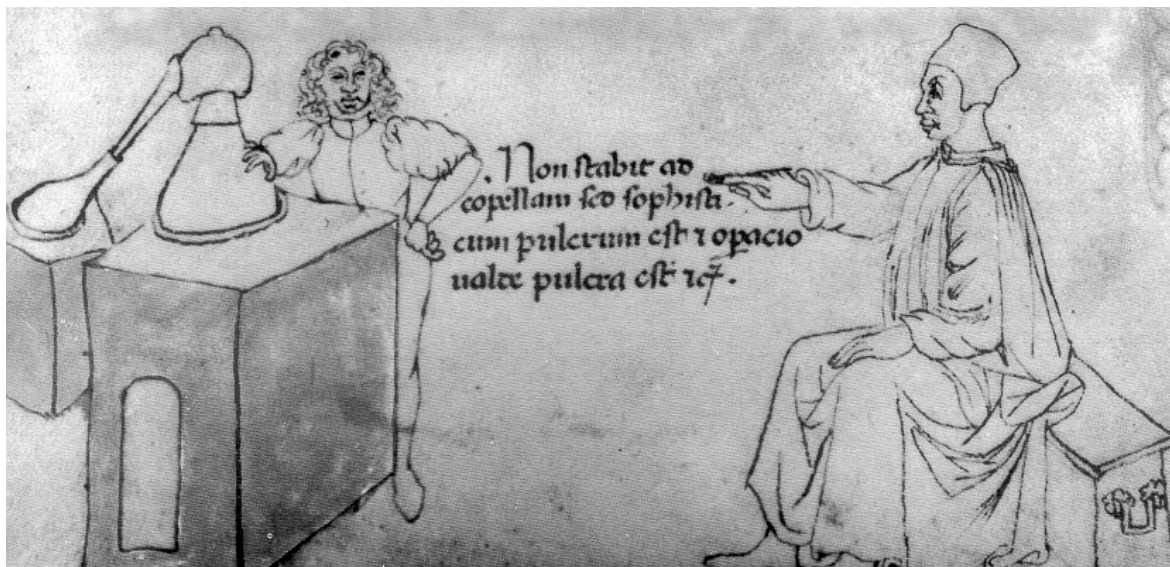 . Non stabit ad
copellam sed sophisti-
cum pulcrum est ⁊ opacio
valde pulcra est ⁊cꝭ.